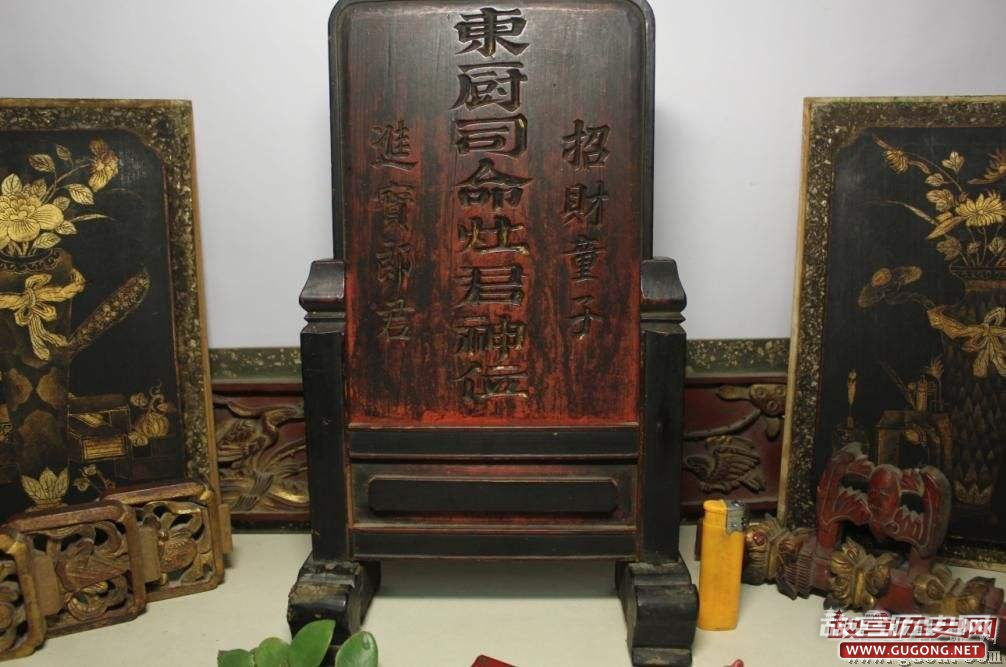 東厨司命灶君神位
招財童子
進寶郎君
故宫历史网
www.GUGONG.NET